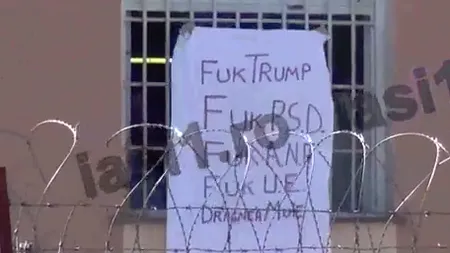 FUK TRUMP
FUK PSD
FUK ANP
FUK U.E.
DRAGNEA MUIE
iasi11.ro
iasi1